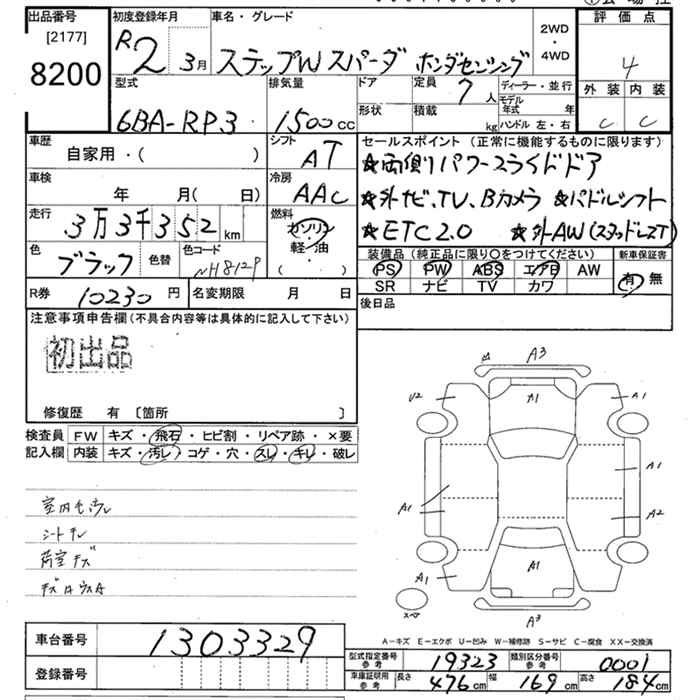 出品番号
[2177]
8200
初度登録年月
R2 3月
車名・グレード
ステップWスパーダ ホンダセンシング
2WD
・
4WD
評価点
4
外装 内装
C C
型式
6BA-RP3
排気量
1500cc
ドア
形状
定員
7人
積載
kg
ディーラー・並行
モデル年式 年
ハンドル 左・右
車歴
自家用・( )
シフト
AT
車検
年 月( 日)
冷房
AAC
走行
3万3千352km
燃料
ガソリン
軽・油
( )
色
ブラック
色替
色コード
NH812P
R券
10230円
名変期限 月 日
セールスポイント(正常に機能するものに限ります)
★両側パワースライドドア
★外ナビ、TV、Bカメラ ★パドルシフト
★ETC2.0 ★外AW(スタッドレスT)
装備品(純正品に限り○をつけてください)
PS PW ABS エアB AW
SR ナビ TV カワ
新車保証書
有 無
後日品
注意事項申告欄(不具合内容等は具体的に記入して下さい)
初出品
修復歴 有 〔箇所 〕
検査員
記入欄
FW キズ・飛石・ヒビ割・リペア跡・×要
内装 キズ・汚レ・コゲ・穴・スレ・キレ・破レ
シートキレ
荷室キズ
A3
U2
A1
A1
A1
A1
A2
A1
A1
A3
スペア
A-キズ E-エクボ U-凹み W-補修跡 S-サビ C-腐食 XX-交換済
車台番号
1303329
登録番号
型式指定番号
参考
19323
類別区分番号
参考
0001
車庫証明用
参考
長さ 476cm 幅 169cm 高さ 184cm